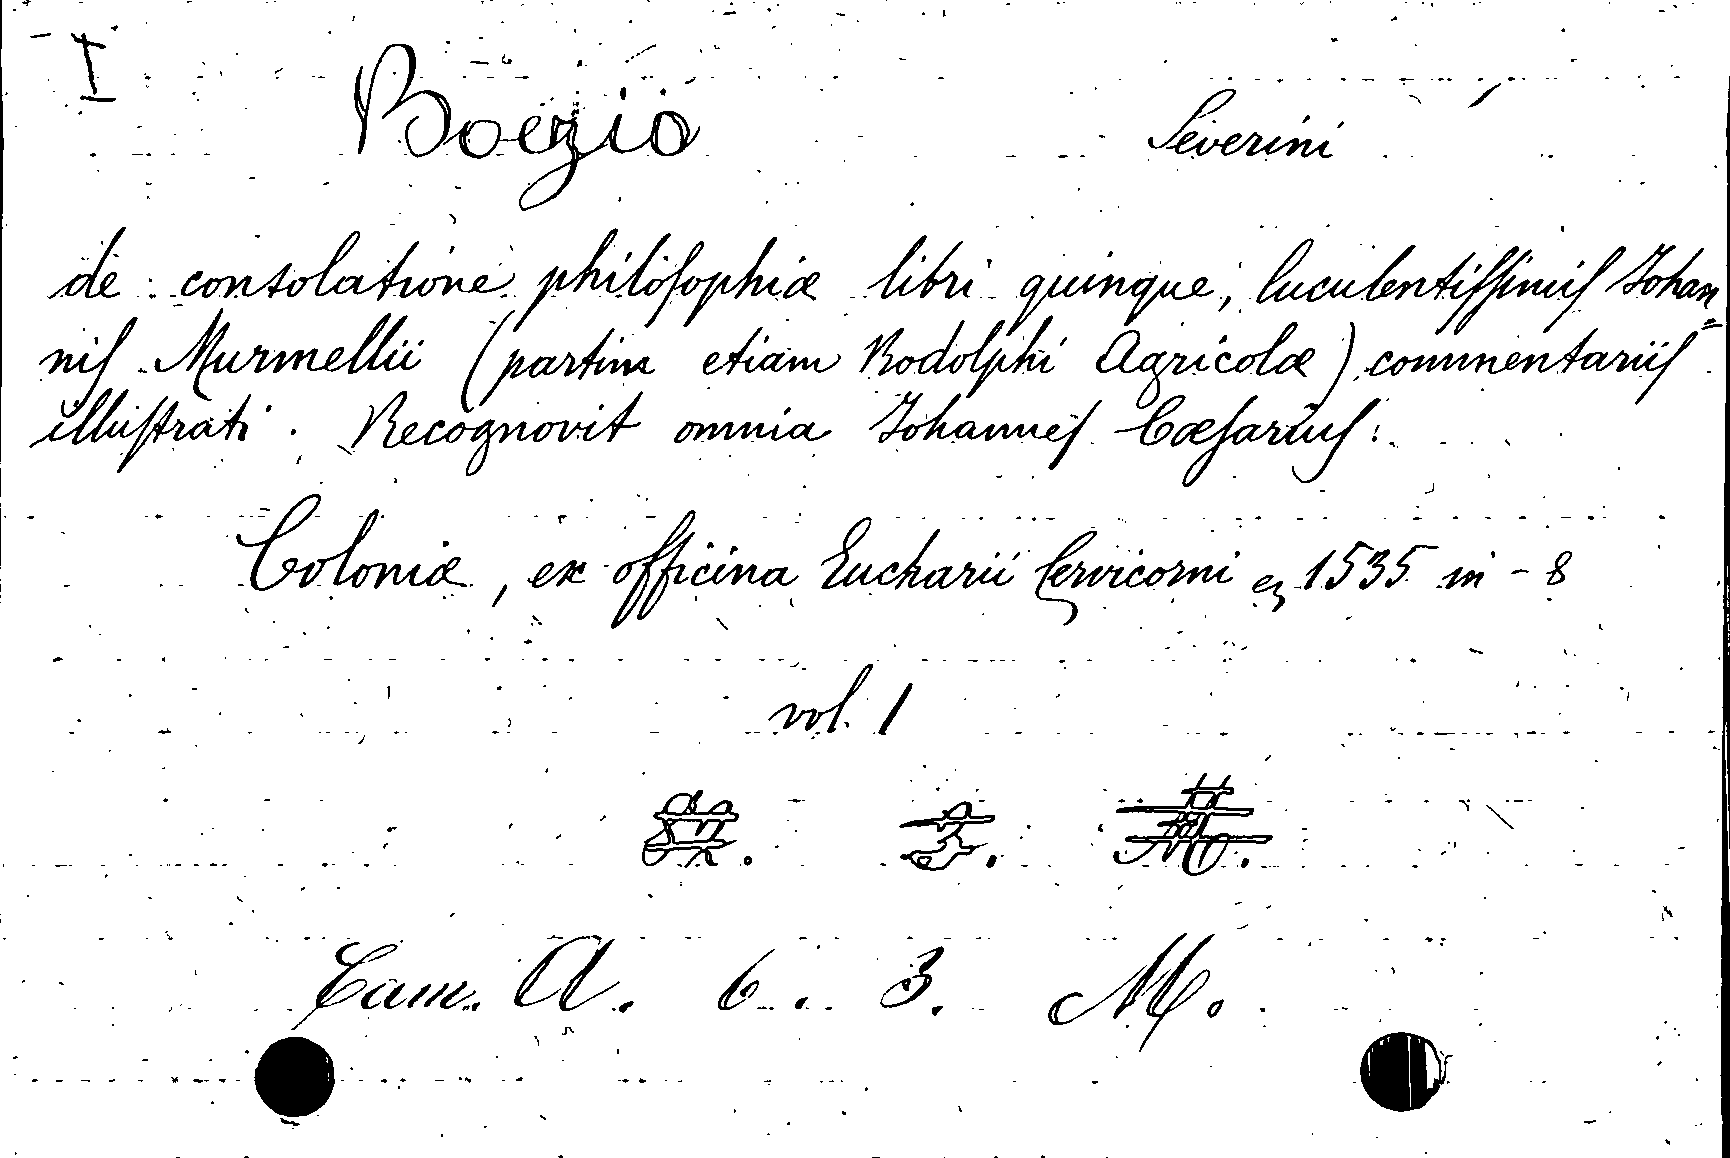 I Boezio Severini
de consolatione philosophiæ libri quinque, luculentissimis Johan=
nis Murmellii (partim etiam Rodolphi Agricolæ) commentariis
illustrati. Recognovit omnia Johannes Cæsarius.
Coloniæ, ex officina Eucharii Cervicorni 1535 in-8
vol. 1
Cam. A. 6. 3. M.